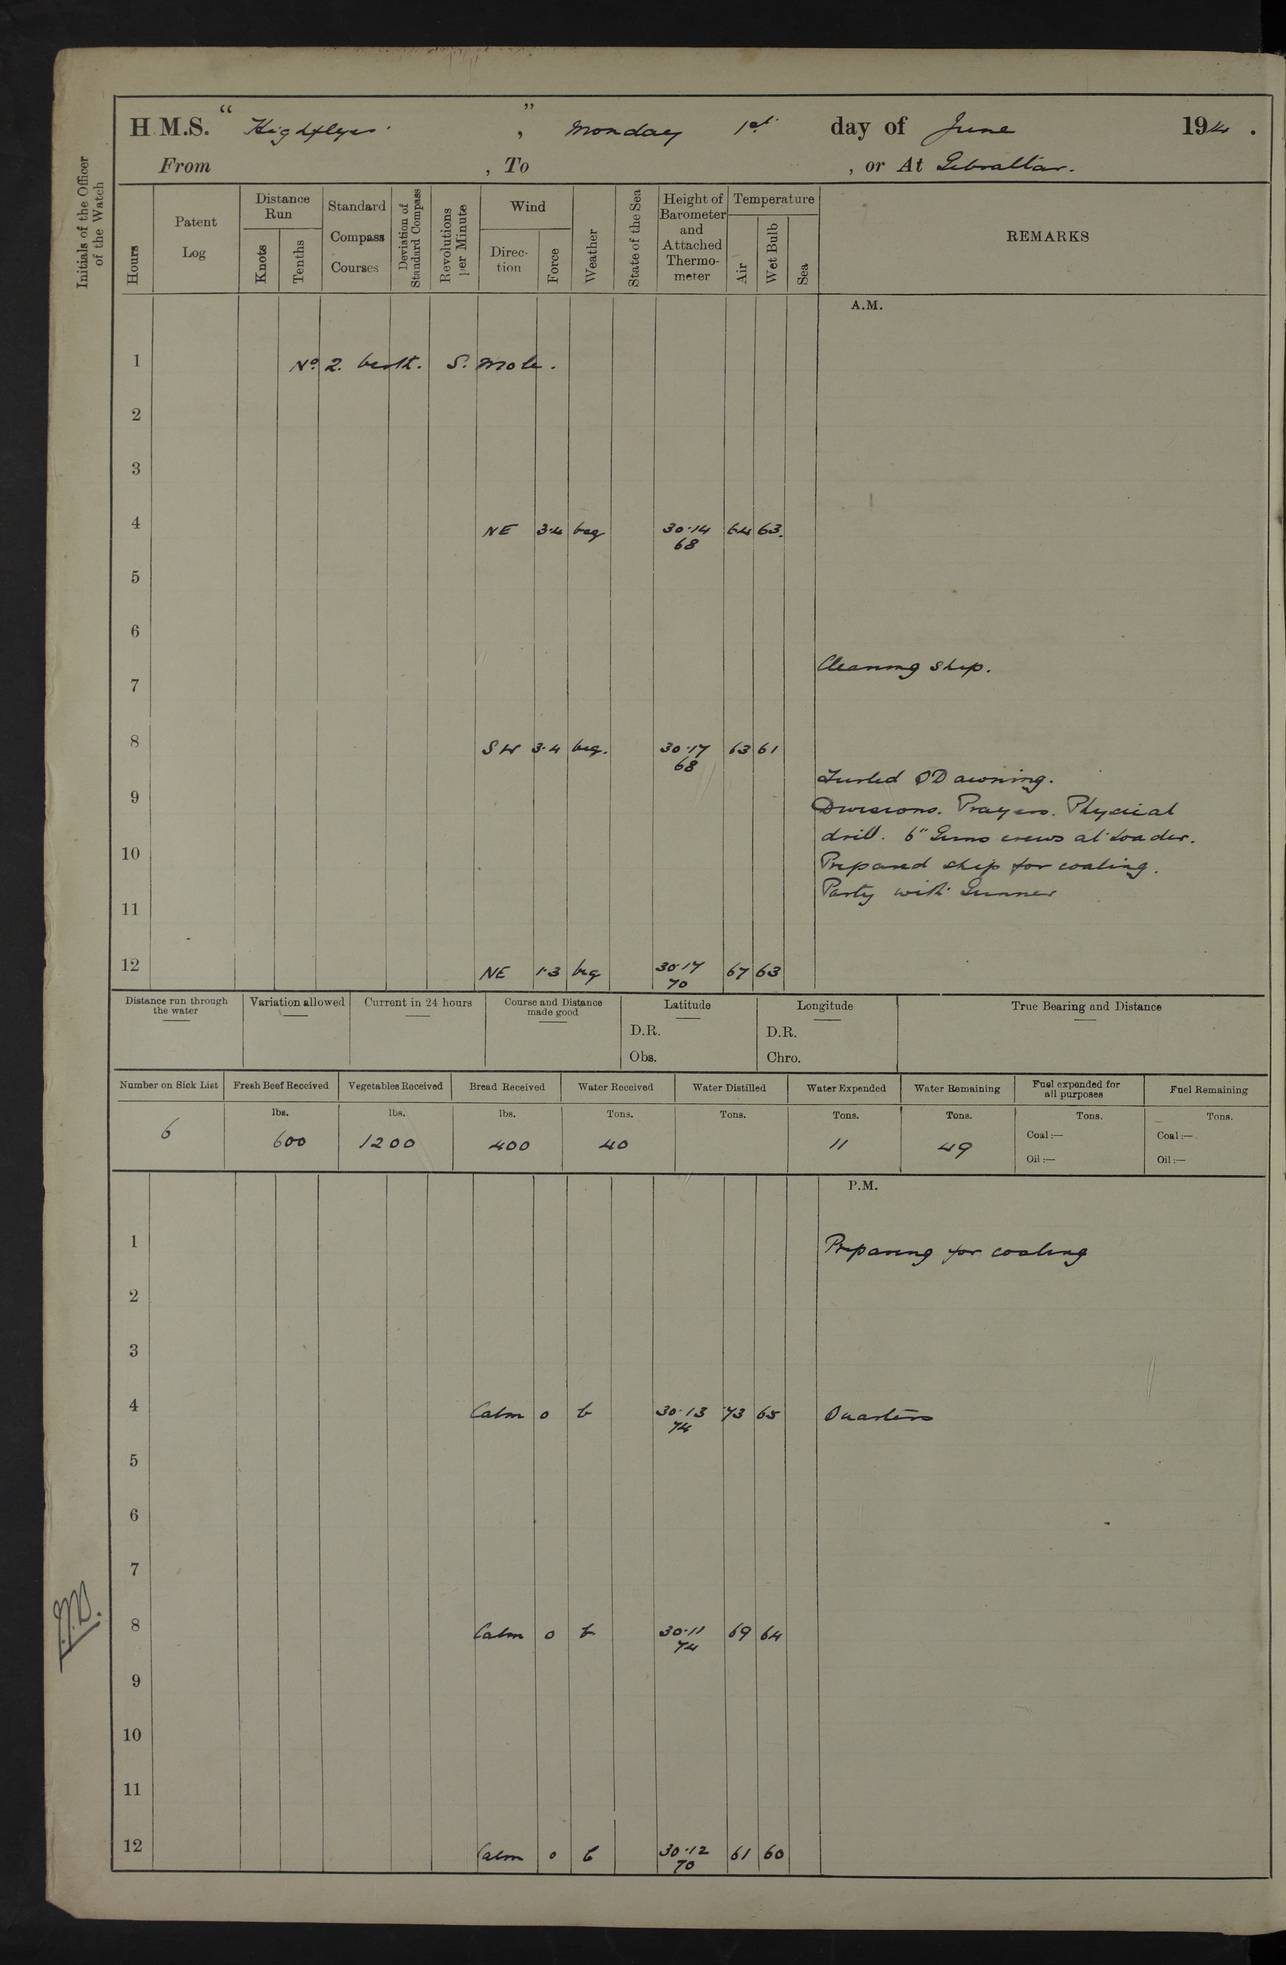 H.M.S. " Highflyer " , Monday 1st day of June 1914.
From , To , or At Gibraltar.
Initials of the Officer of the Watch
Hours
Patent Log
Distance Run
Knots
Tenths
Standard Compass Courses
Deviation of Standard Compass
Revolutions per Minute
Wind
Direction
Force
Weather
State of the Sea
Height of Barometer and Attached Thermometer
Temperature
Air
Wet Bulb
Sea
REMARKS
A.M.
1 No 2. berth. S. Mole.
2
3
4 NE 3.4 bcg 30.14 64 63.
68
5
6
Cleaning ship.
7
8 SW 3.4 bcg. 30.17 63 61
68
Furled QD awning.
9
Divisions. Prayers. Physical
drill. 6" Guns crews at loader.
10
Prepared ship for coaling.
Party with Gunner
11
12 NE 1.3 bcg 30.17 67 63
70
Distance run through the water
Variation allowed
Current in 24 hours
Course and Distance made good
Latitude
D.R.
Obs.
Longitude
D.R.
Chro.
True Bearing and Distance
Number on Sick List Fresh Beef Received Vegetables Received Bread Received Water Received Water Distilled Water Expended Water Remaining Fuel expended for all purposes Fuel Remaining
lbs. lbs. lbs. Tons. Tons. Tons. Tons. Tons. Tons.
6 600 1200 400 40 11 49
Coal:— Coal:—
Oil:— Oil:—
P.M.
1 Preparing for coaling
2
3
4 Calm 0 b 30.13 73 65 Quarters
74
5
6
7
8 Calm 0 b 30.11 69 64
74
9
10
11
12 Calm 0 b 30.12 61 60
70